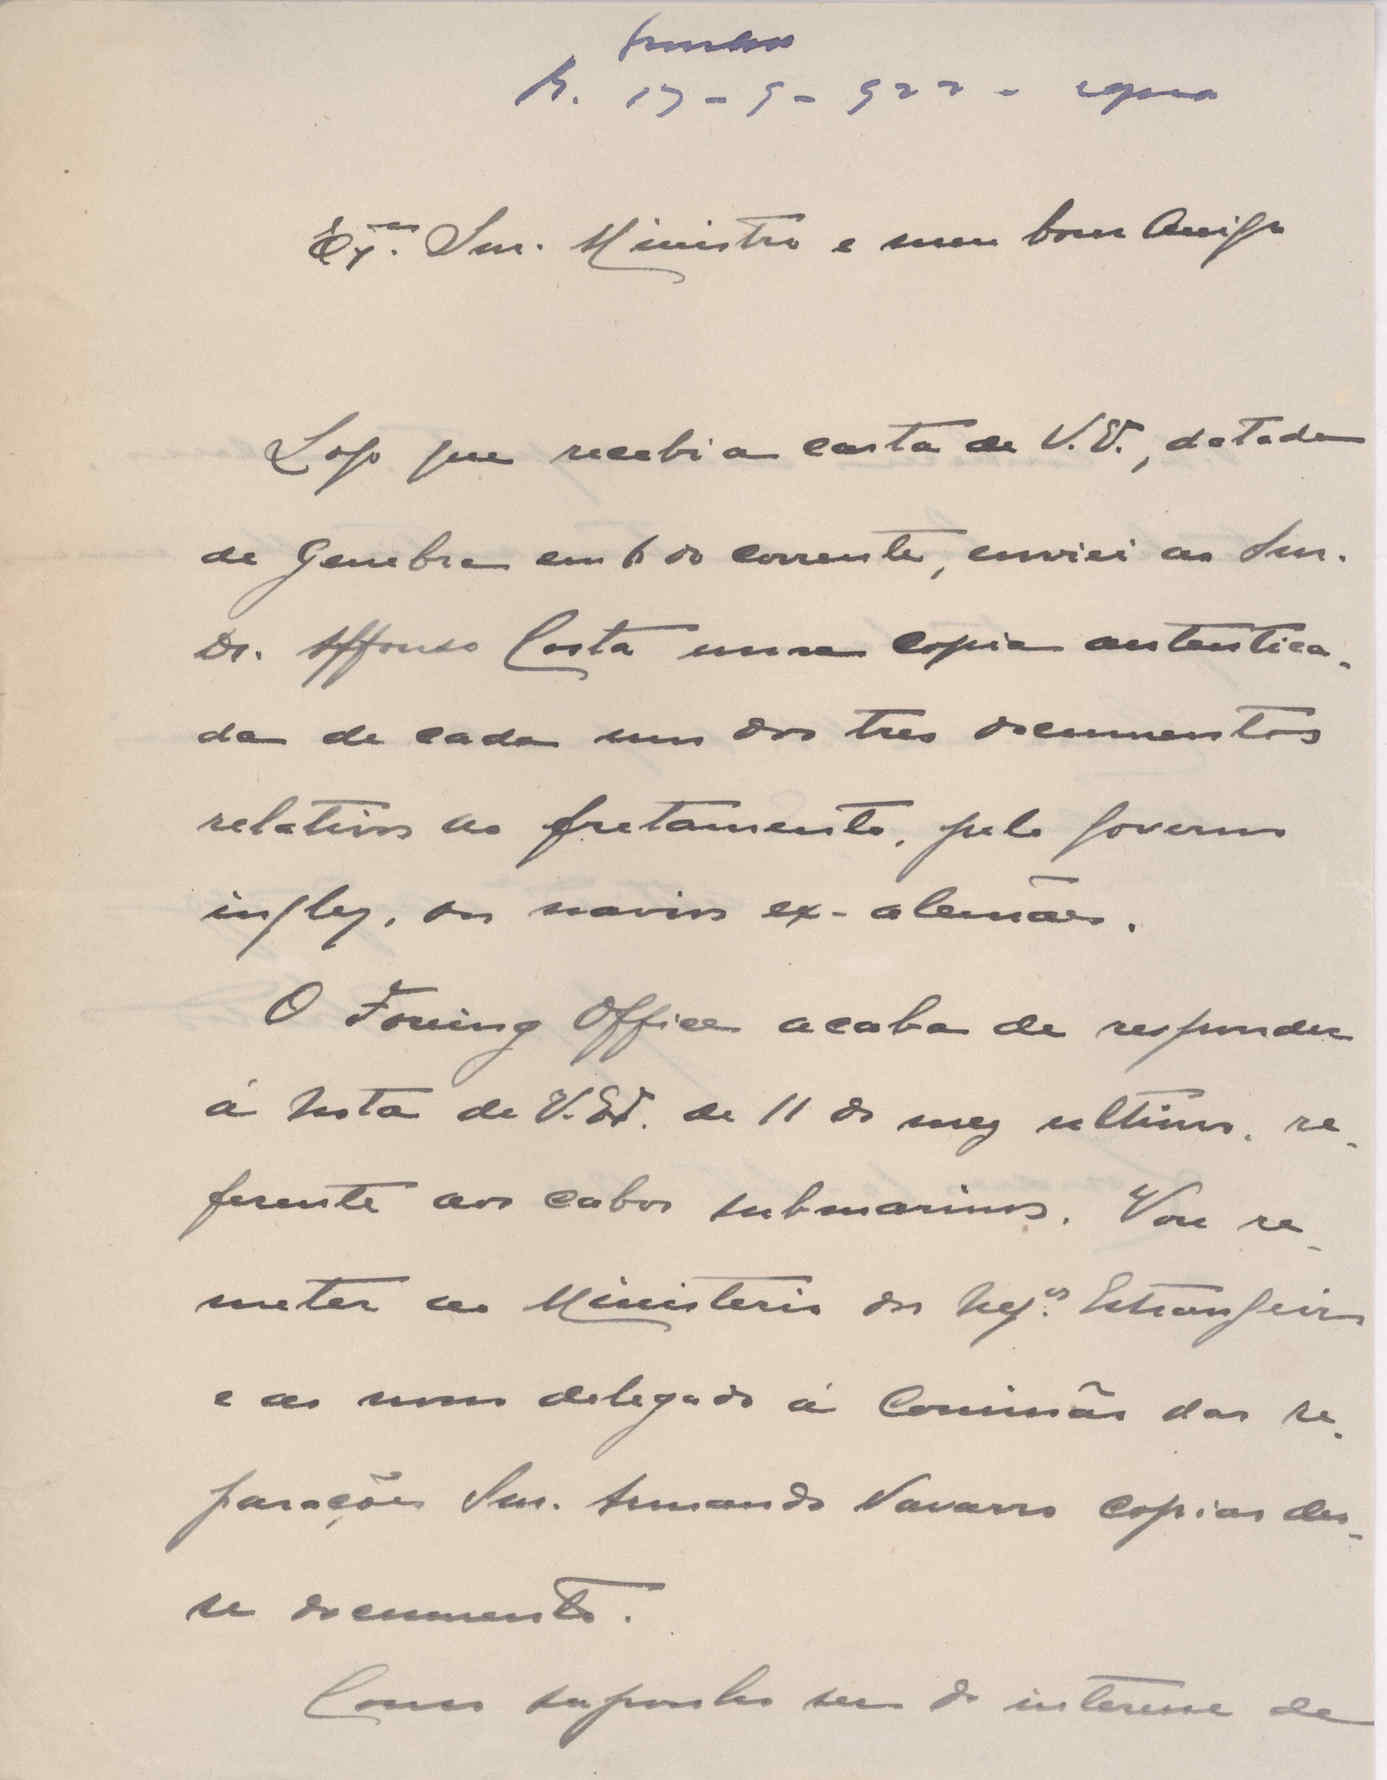 R. 17-9-922 -
Ex.mo Snr. Ministro e meu bom Amigo
Logo que recebi a carta de V. Ex.ª, datada
de Genebra em 6 do corrente, enviei ao Snr.
Dr. Affonso Costa uma copia autentica-
da de cada um dos tres documentos
relativos ao fretamento, pelo Governo
inglez, dos navios ex-alemães.
O Foreing Office acaba de responder
á Nota de V. Ex.ª de 11 do mez ultimo, re-
ferente aos cabos submarinos. Vou re-
meter ao Ministerio dos Neg.os Estrangeiros
e ao nosso delegado á Comissão das re-
parações Snr. Armando Navarro copias des-
se documento.
Como suponho ser do interesse de